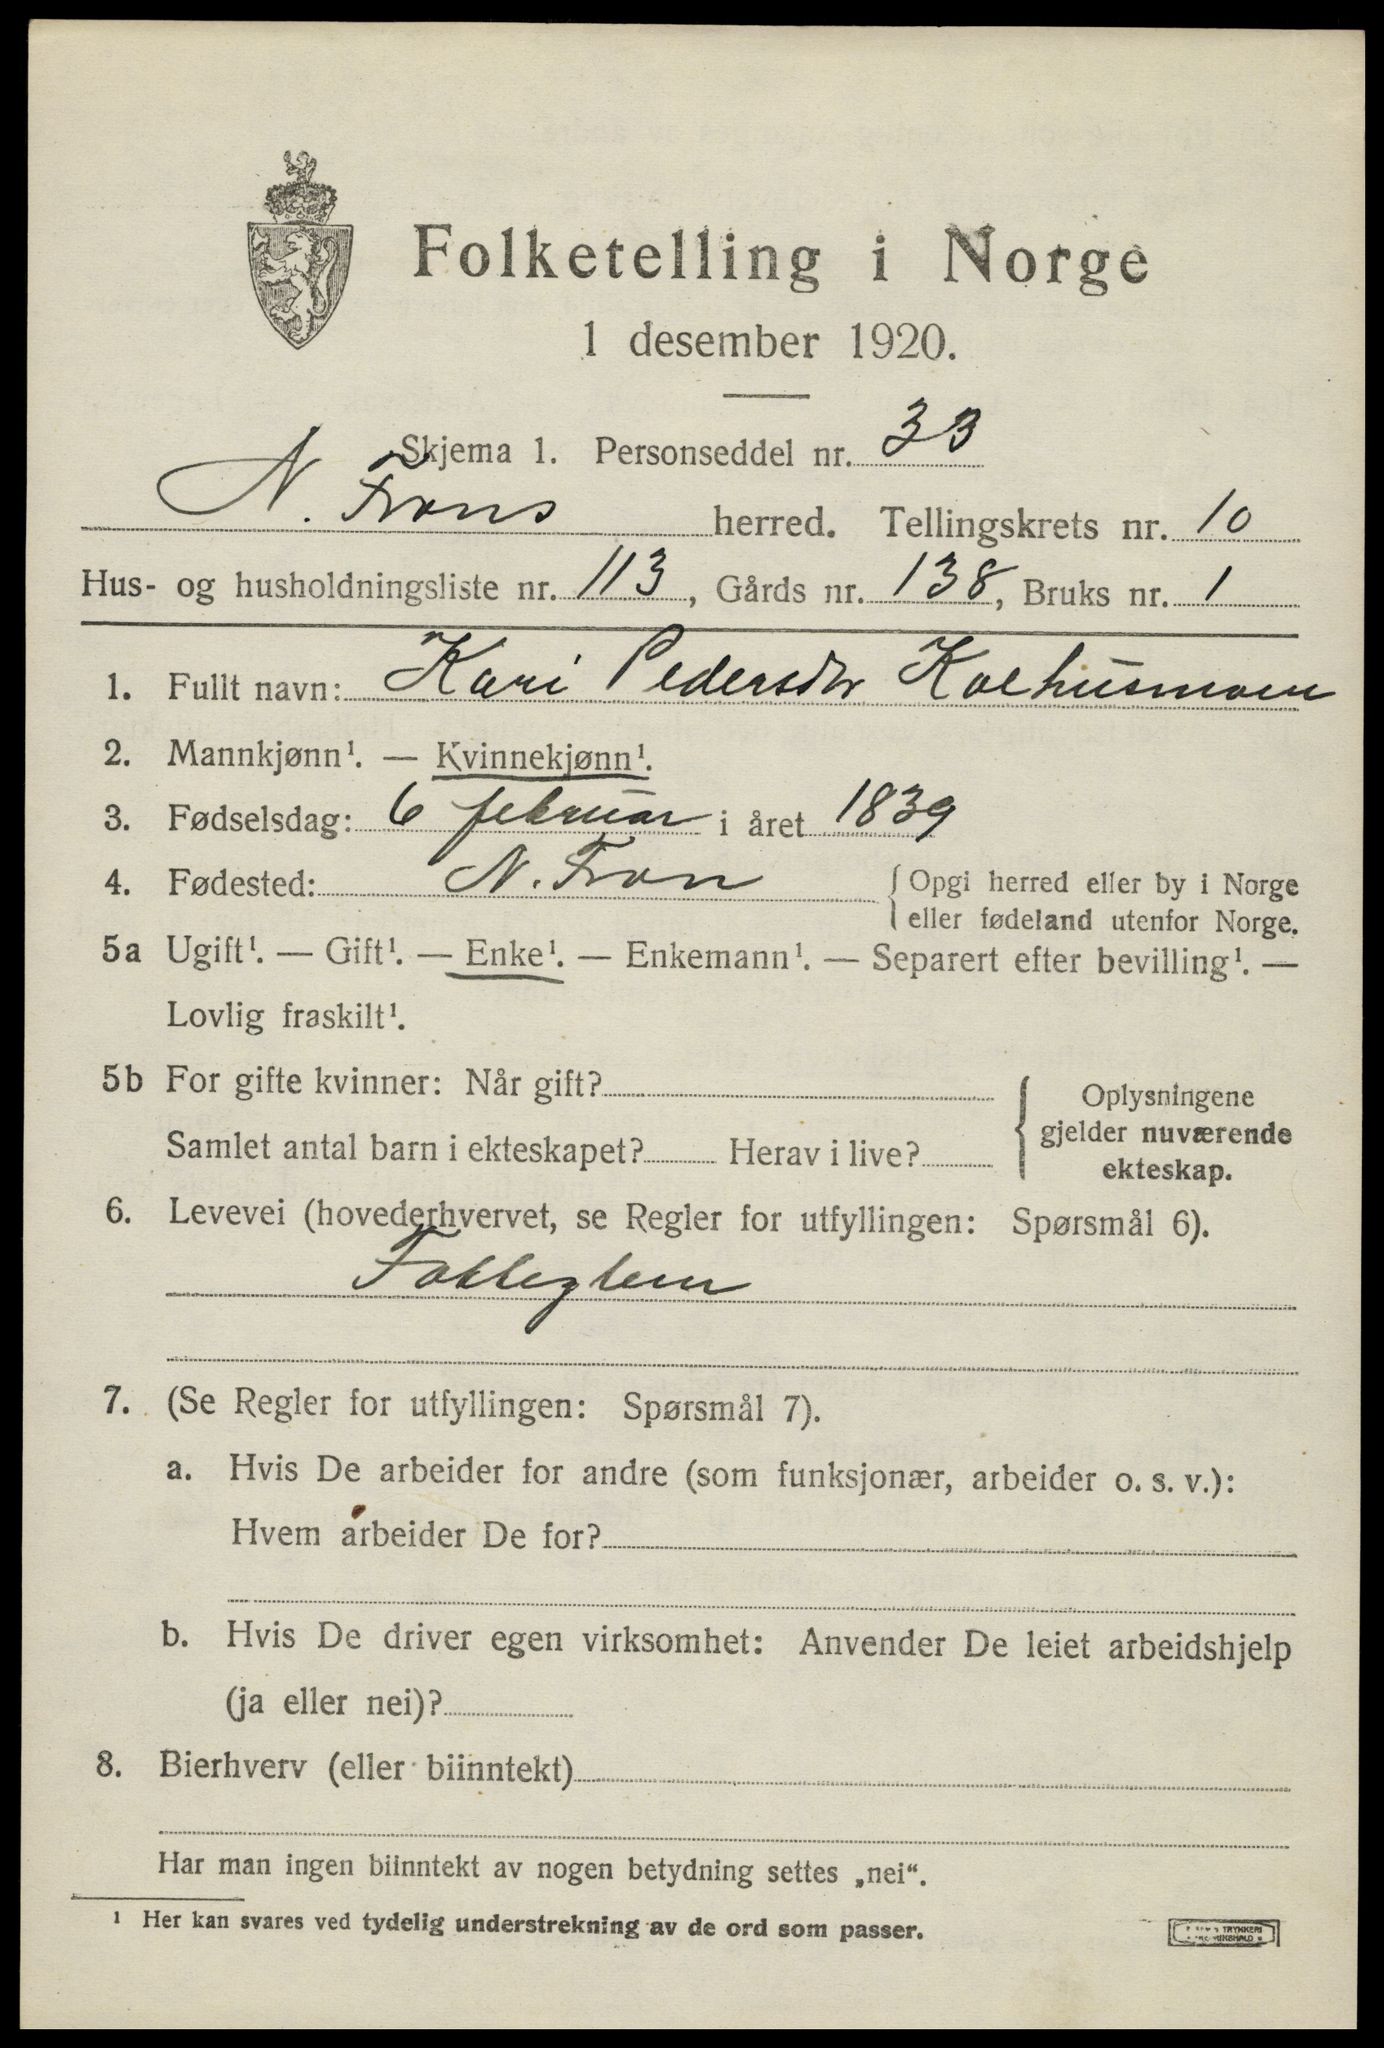 Folketelling i Norge
1 desember 1920.
Skjema 1. Personseddel nr. 33
N. Frons herred. Tellingskrets nr. 10
Hus- og husholdningsliste nr. 113, Gårds nr. 138, Bruks nr. 1
1. Fullt navn: Kari Pedersdtr Kolhusmoen
2. Mannkjønn¹. — Kvinnekjønn¹.
3. Fødselsdag: 6 februar i året 1839
4. Fødested: N. Fron {Opgi herred eller by i Norge
eller fødeland utenfor Norge.
5a Ugift¹. — Gift¹. — Enke¹. — Enkemann¹. — Separert efter bevilling¹. —
Lovlig fraskilt¹.
5b For gifte kvinner: Når gift?
Samlet antal barn i ekteskapet? Herav i live?
{ Oplysningene
gjelder nuværende
ekteskap.
6. Levevei (hovederhvervet, se Regler for utfyllingen: Spørsmål 6).
7. (Se Regler for utfyllingen: Spørsmål 7).
a. Hvis De arbeider for andre (som funksjonær, arbeider o. s. v.):
Hvem arbeider De for?
b. Hvis De driver egen virksomhet: Anvender De leiet arbeidshjelp
(ja eller nei)?
8. Bierhverv (eller biinntekt)
Har man ingen biinntekt av nogen betydning settes „nei“.
¹ Her kan svares ved tydelig understrekning av de ord som passer.